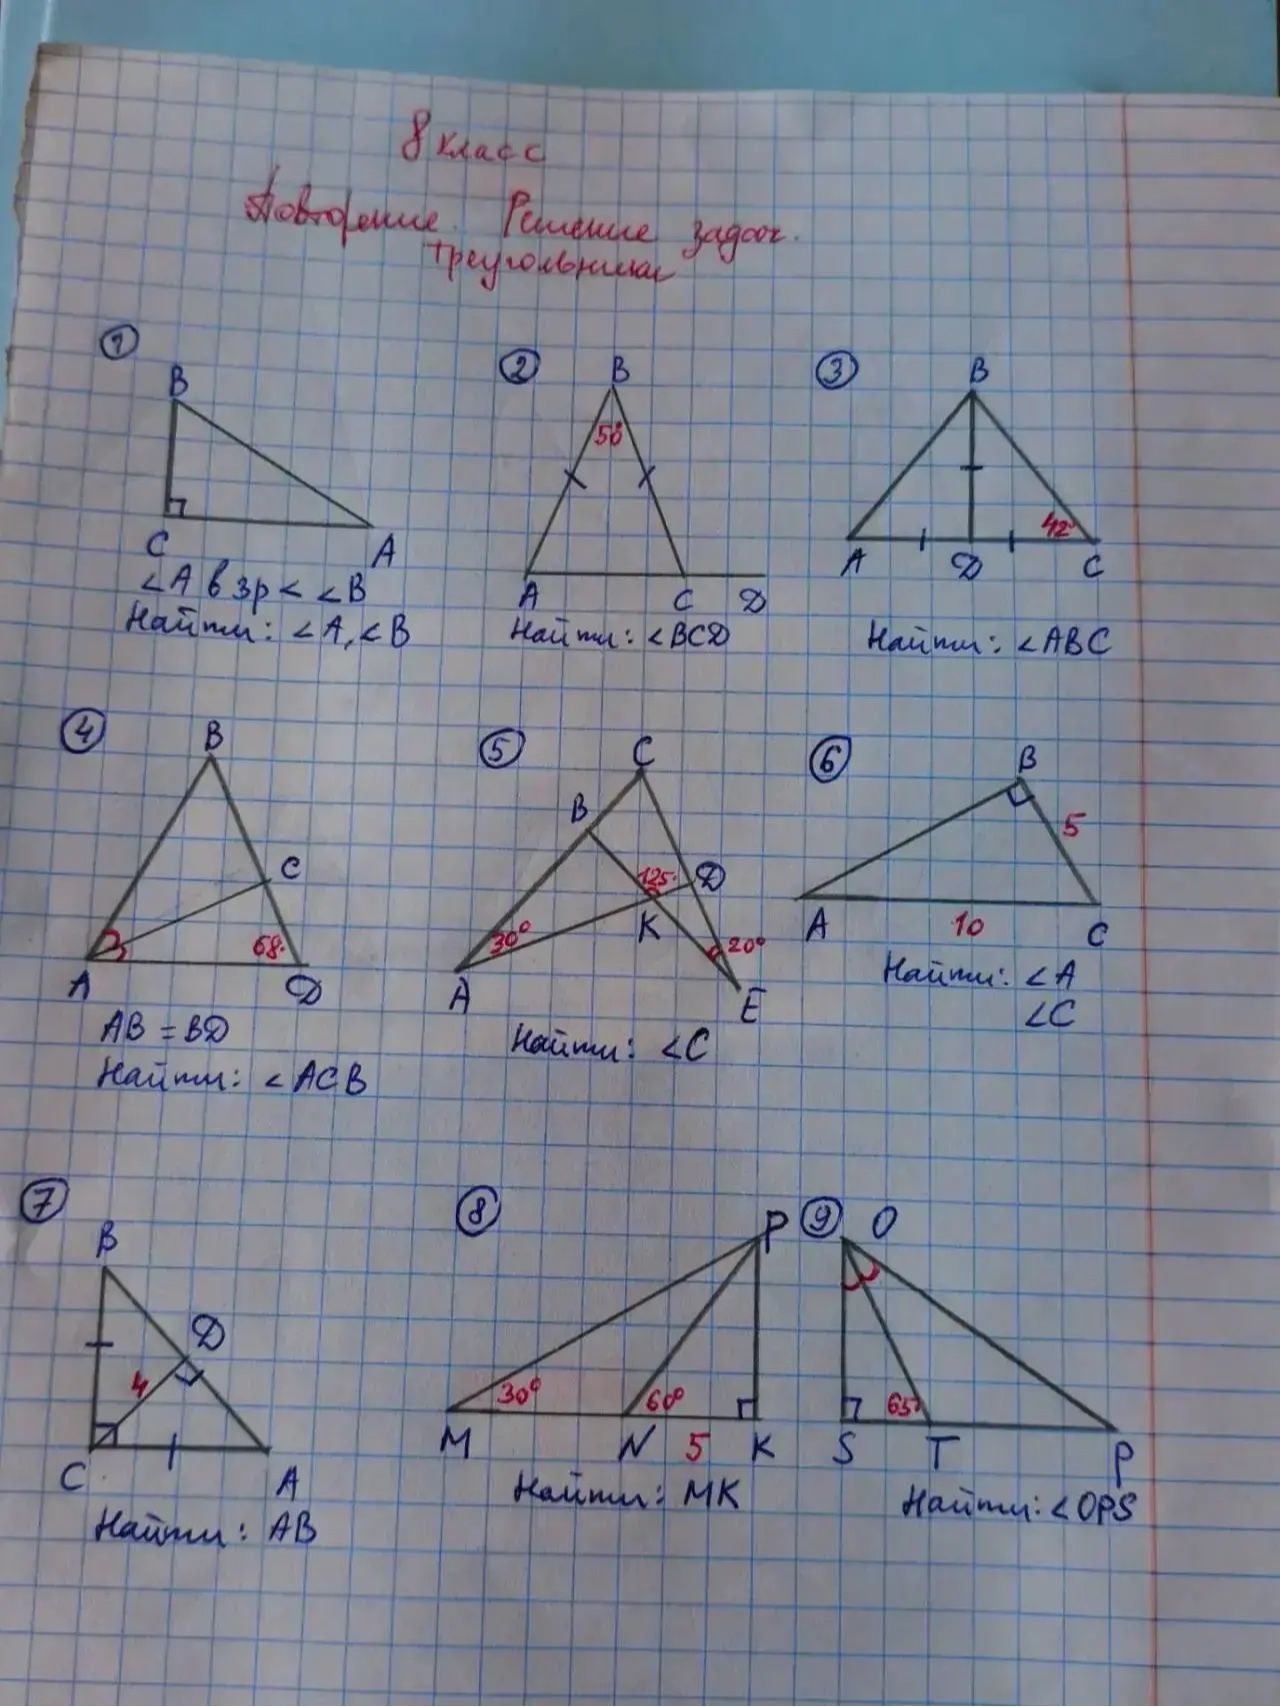 8 класс
Повторение. Решение задач.
Треугольники
1
B
C
A
<A в 3р < <B
Найти: <A, <B
2
B
50°
A
C
D
Найти: <BCD
3
B
42°
A
D
C
Найти: <ABC
4
B
C
68°
A
D
AB = BD
Найти: <ACB
5
C
B
125°
D
30°
K
20°
A
E
Найти: <C
6
B
5
A
10
C
Найти: <A
<C
7
B
D
4
C
A
Найти: AB
8
P
30°
60°
M
N
5
K
Найти: MK
9
O
65°
S
T
P
Найти: <OPS